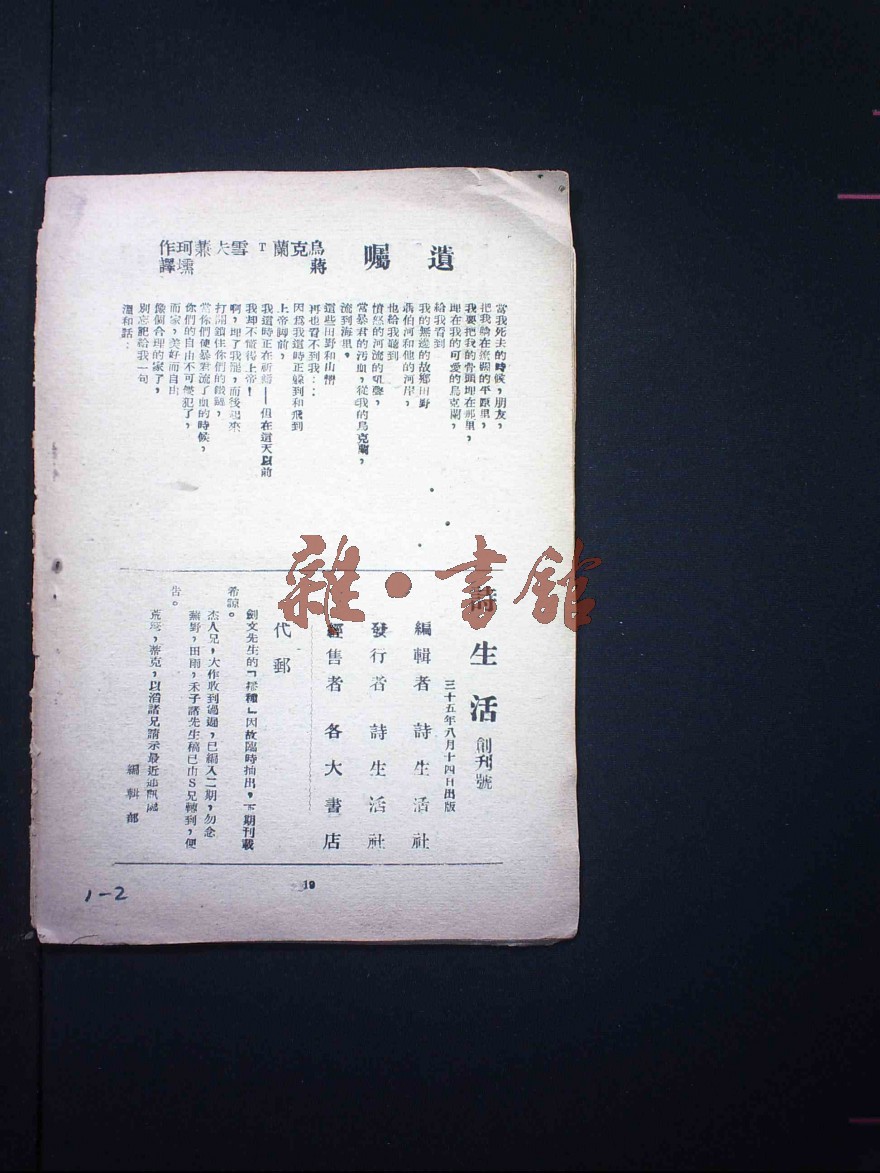 遺囑
烏克蘭 T 雪夫兼珂作
蔣壎譯
當我死去的時候，朋友，
把我躺在遼闊的平原里，
我要把我的骨頭埋在那里，
埋在我的可愛的烏克蘭，
給我看到
我的無邊的故鄉田野
伯河和他的河岸，
也給我聽到
憤怒的河流的吼聲，
當暴君的污血，從我的烏克蘭，
流到海里，
這些田野和山
再也看不到我⋯⋯
因為我這時正躲到和飛到
上帝脚前，
我這時正在祈禱——但在這天以前
我却不懂得上帝！
啊，埋了我罷，而後起來
打開鎖住你們的鐵鏈，
當你們使暴君流了血的時候，
你們的自由不可侵犯了，
而家，美好而自由
像個合理的家了，
別忘記給我一句
溫和話：
詩生活 創刊號
三十五年八月十四日出版
編輯者 詩生活社
發行者 詩生活社
經售者 各大書店
代郵
劍文先生的「播種」因故臨時抽出，下期刊載
希諒。
杰人兄，大作收到過遲，已編入二期，勿念
蕪野，田雨，禾子諸先生稿已由S兄轉到，便
告。
以滔諸兄請示最近通訊處
編輯部
19
1-2
雜·書館